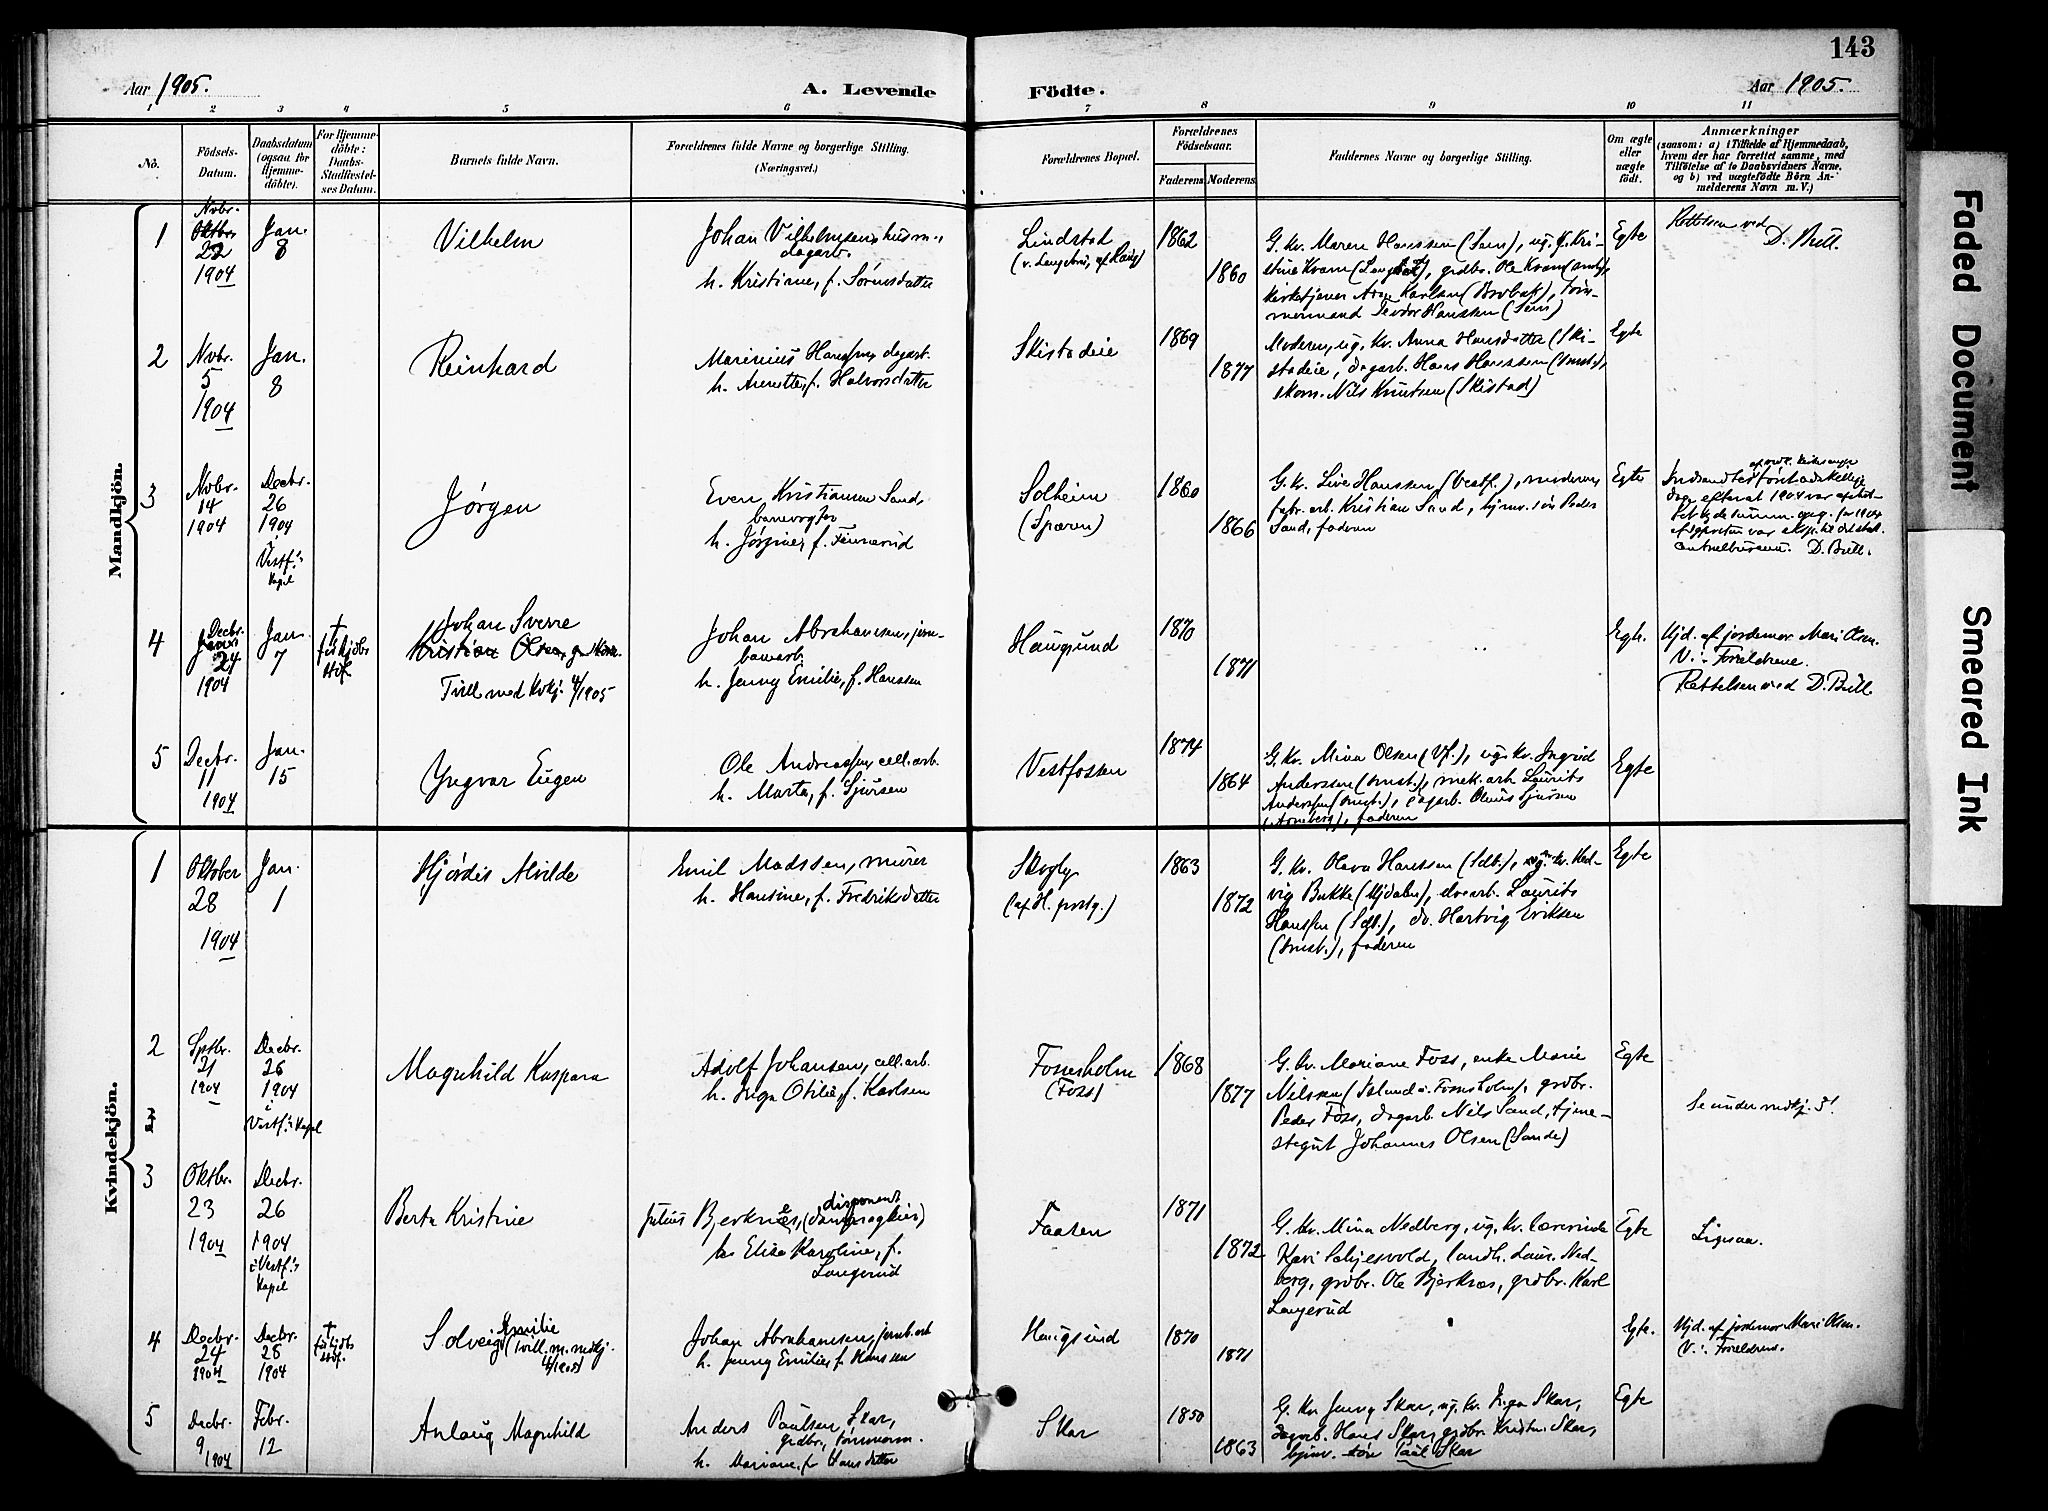 143
Aar 1905.
A. Levende
Födte.
Aar 1905.
1 2 3 4 5 6 7 8 9 10 11
No.
Födsels-
Datum.
Daabsdatum
(ogsaa for
Hjemme-
döbte).
For Hjemme-
döbte:
Daabs-
Stadfæstel-
ses Datum.
Barnets fulde Navn.
Forældrenes fulde Navne og borgerlige Stilling.
(Næringsvei.)
Forældrenes Bopæl.
Forældrenes
Födselsaar.
Faderens
Moderens
Faddernes Navne og borgerlige Stilling.
Om ægte
eller
uægte
födt.
Anmærkninger
(saasom: a) i Tilfælde af Hjemmedaab,
hvem der har forrettet samme, med
Tilföielse af to Daabsvidners Navne,
og b) ved uægtefödte Börn An-
melderens Navn m. V.)
Mandkjön.
1
Novbr.
Oktbr.
22
1904
Jan.
8
Vilhelm
Johan Vilhelmsen, husm.,
dagarb.
h. Kristiane, f. Sørensdatter
Lindstad
1862
1860
G. kv. Maren Hanssen (Sem), ug. kv. Kri-
stine Kvam, grdbr. Ole Kvam
kirketjener Karlsen, Tøm-
mermand Teodor Hanssen (Sem)
Egte
Rettelsen ved
D. Bull.
2
Novbr.
5
1904
Jan.
8
Reinhard
Marinius Hanssen, dagarb.
h. Anette, f. Halvorsdatter
Skistadeie
1869
1877
Moderen, ug. kv. Anna Hansdatter (Ski-
stadeie, dagarb. Hans Hanssen
skom. Nils Knutsen (Skistad)
Egte
3
Novbr.
14
1904
Decbr.
26
1904
i
Vestf.'s
Kapel
Jørgen
Even Kristiansen Sand,
banevogter
h. Jørgine, f. Finnerud
Solheim
(Sparen)
1860
1866
G. kv. Live Hanssen (Vestf.), moderen,
fabr. arb. Kristian Sand, hjmv. søn Peder
Sand, faderen
Egte
D. Bull.
4
Decbr.
24
1904
Jan.
7
†
Johan Sverre
Tvill. med kvkj. 4/1905
Johan Abrahamsen, jern-
banearb.
h. Jenny Emilie, f. Hanssen
Haugsund
1870
1871
Egte.
Hjd. af jordemor Mari Olsen.
V.: Forældrene.
Rettelsen ved D. Bull.
5
Decbr.
11
1904
Jan.
15
Yngvar Eugen
Ole Andreassen, cell. arb.
h. Marta, f. Sjursen
Vestfossen
1874
1864
G. kv. Mina Olsen (Vf.), ug. kv. Ingrid
Anderssen (smst.), mek. arb. Laurits
Anderssen (smst.), dagarb. Olaus Sjursen
(Arneberg), faderen
Egte
Kvindekjön.
1
Oktober
28
1904
Jan.
1
Hjørdis Alvilde
Emil Madssen, murer
h. Hansine, f. Fredriksdatter
Skogly
(af H. prstg.)
1863
1872
G. kv. Olava Hanssen (Sdb.), ug. kv. Hed-
vig Bakke (Mjdalen), elvearb. Laurits
Hanssen (Sdb.), do. Hartvig Eriksen
(smst.), faderen
Egte
2
Sptbr.
21
1904
Decbr.
26
1904
i
Vestf.'s Kapel
Magnhild Kaspara
Adolf Johansen, cell. arb.
h. Inga Otilie, f. Karlsen
Fossesholm
(Foss)
1868
1877
G. kv. Mariane Foss, enke Marie
Nilssen, grdbr.
Peder Foss, dagarb. Nils Sand, tjene-
stegut Johannes Olsen (Sande)
Egte
Se under mdkj. 3!
3
Oktbr.
23
1904
Decbr.
26
1904
i Vestf.'s
Kapel
Berta Kristine
Julius Bjerknes, disponent
h. Elise Karoline, f.
Langerud
Faasen
1871
1872
G. kv. Mina Nedberg, ug. kv. lærerinde
Kari Schjesvold, landh. Laur. Ned-
berg, grdbr. Ole Bjerknæs, grdbr. Karl
Langerud
Egte
Ligesaa.
4
Decbr.
24
1904
Decbr.
28
1904
†
Solveig Emilie
(tvill. m. mdkj.
4/1905)
Johan Abrahamsen, jernb. arb
h. Jenny Emilie, f. Hanssen
Haugsund
1870
1871
Egte.
Hjd. af jordemor Mari Olsen.
V.: Forældrene.
5
Decbr.
9
1904
Febr.
12
Anlaug Magnhild
Anders Paulsen Skar,
grdbr., tømmerm.
h. Mariane, f. Hansdatter
Skar
1850
1863
G. kv. Jenny Skar, ug. kv. Inga Skar,
dagarb. Hans Skar, grdbr. Kristen Skar,
hjmv. søn Paul Skar
Egte
Faded Document
Smeared Ink